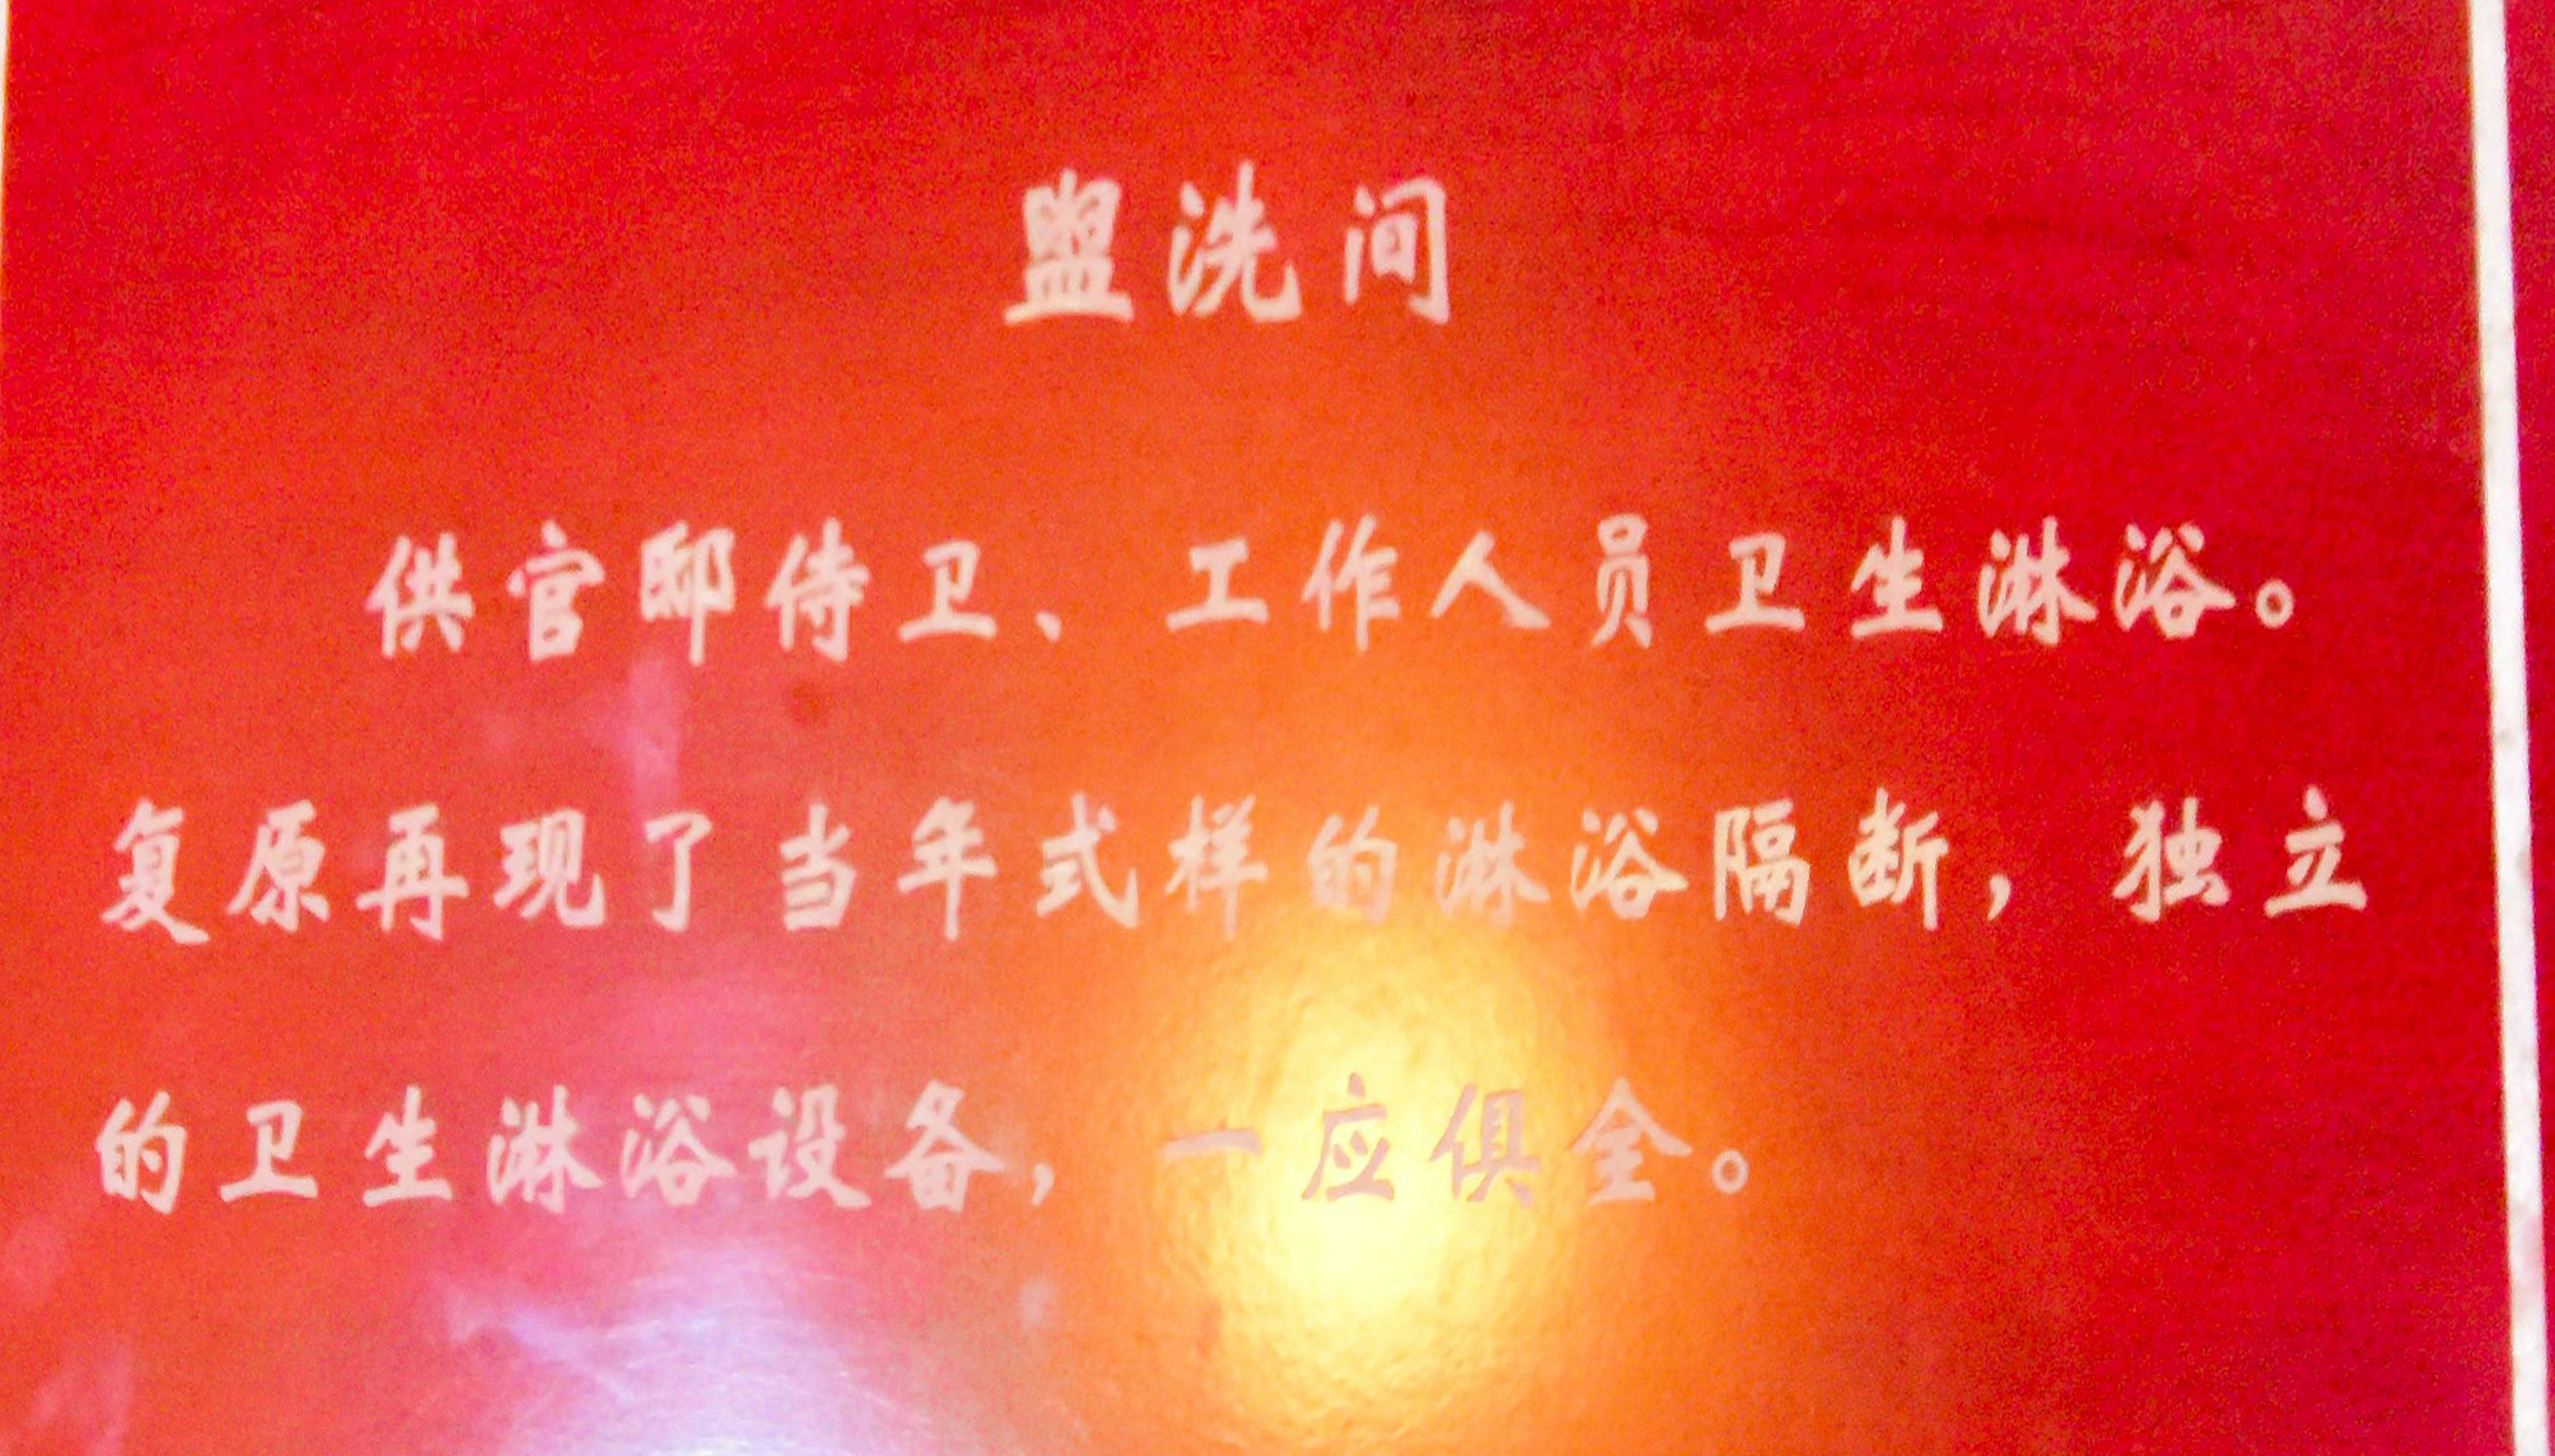 盥洗间
供官邸侍卫、工作人员卫生淋浴。
复原再现了当年式样的淋浴隔断，独立
的卫生淋浴设备，一应俱全。